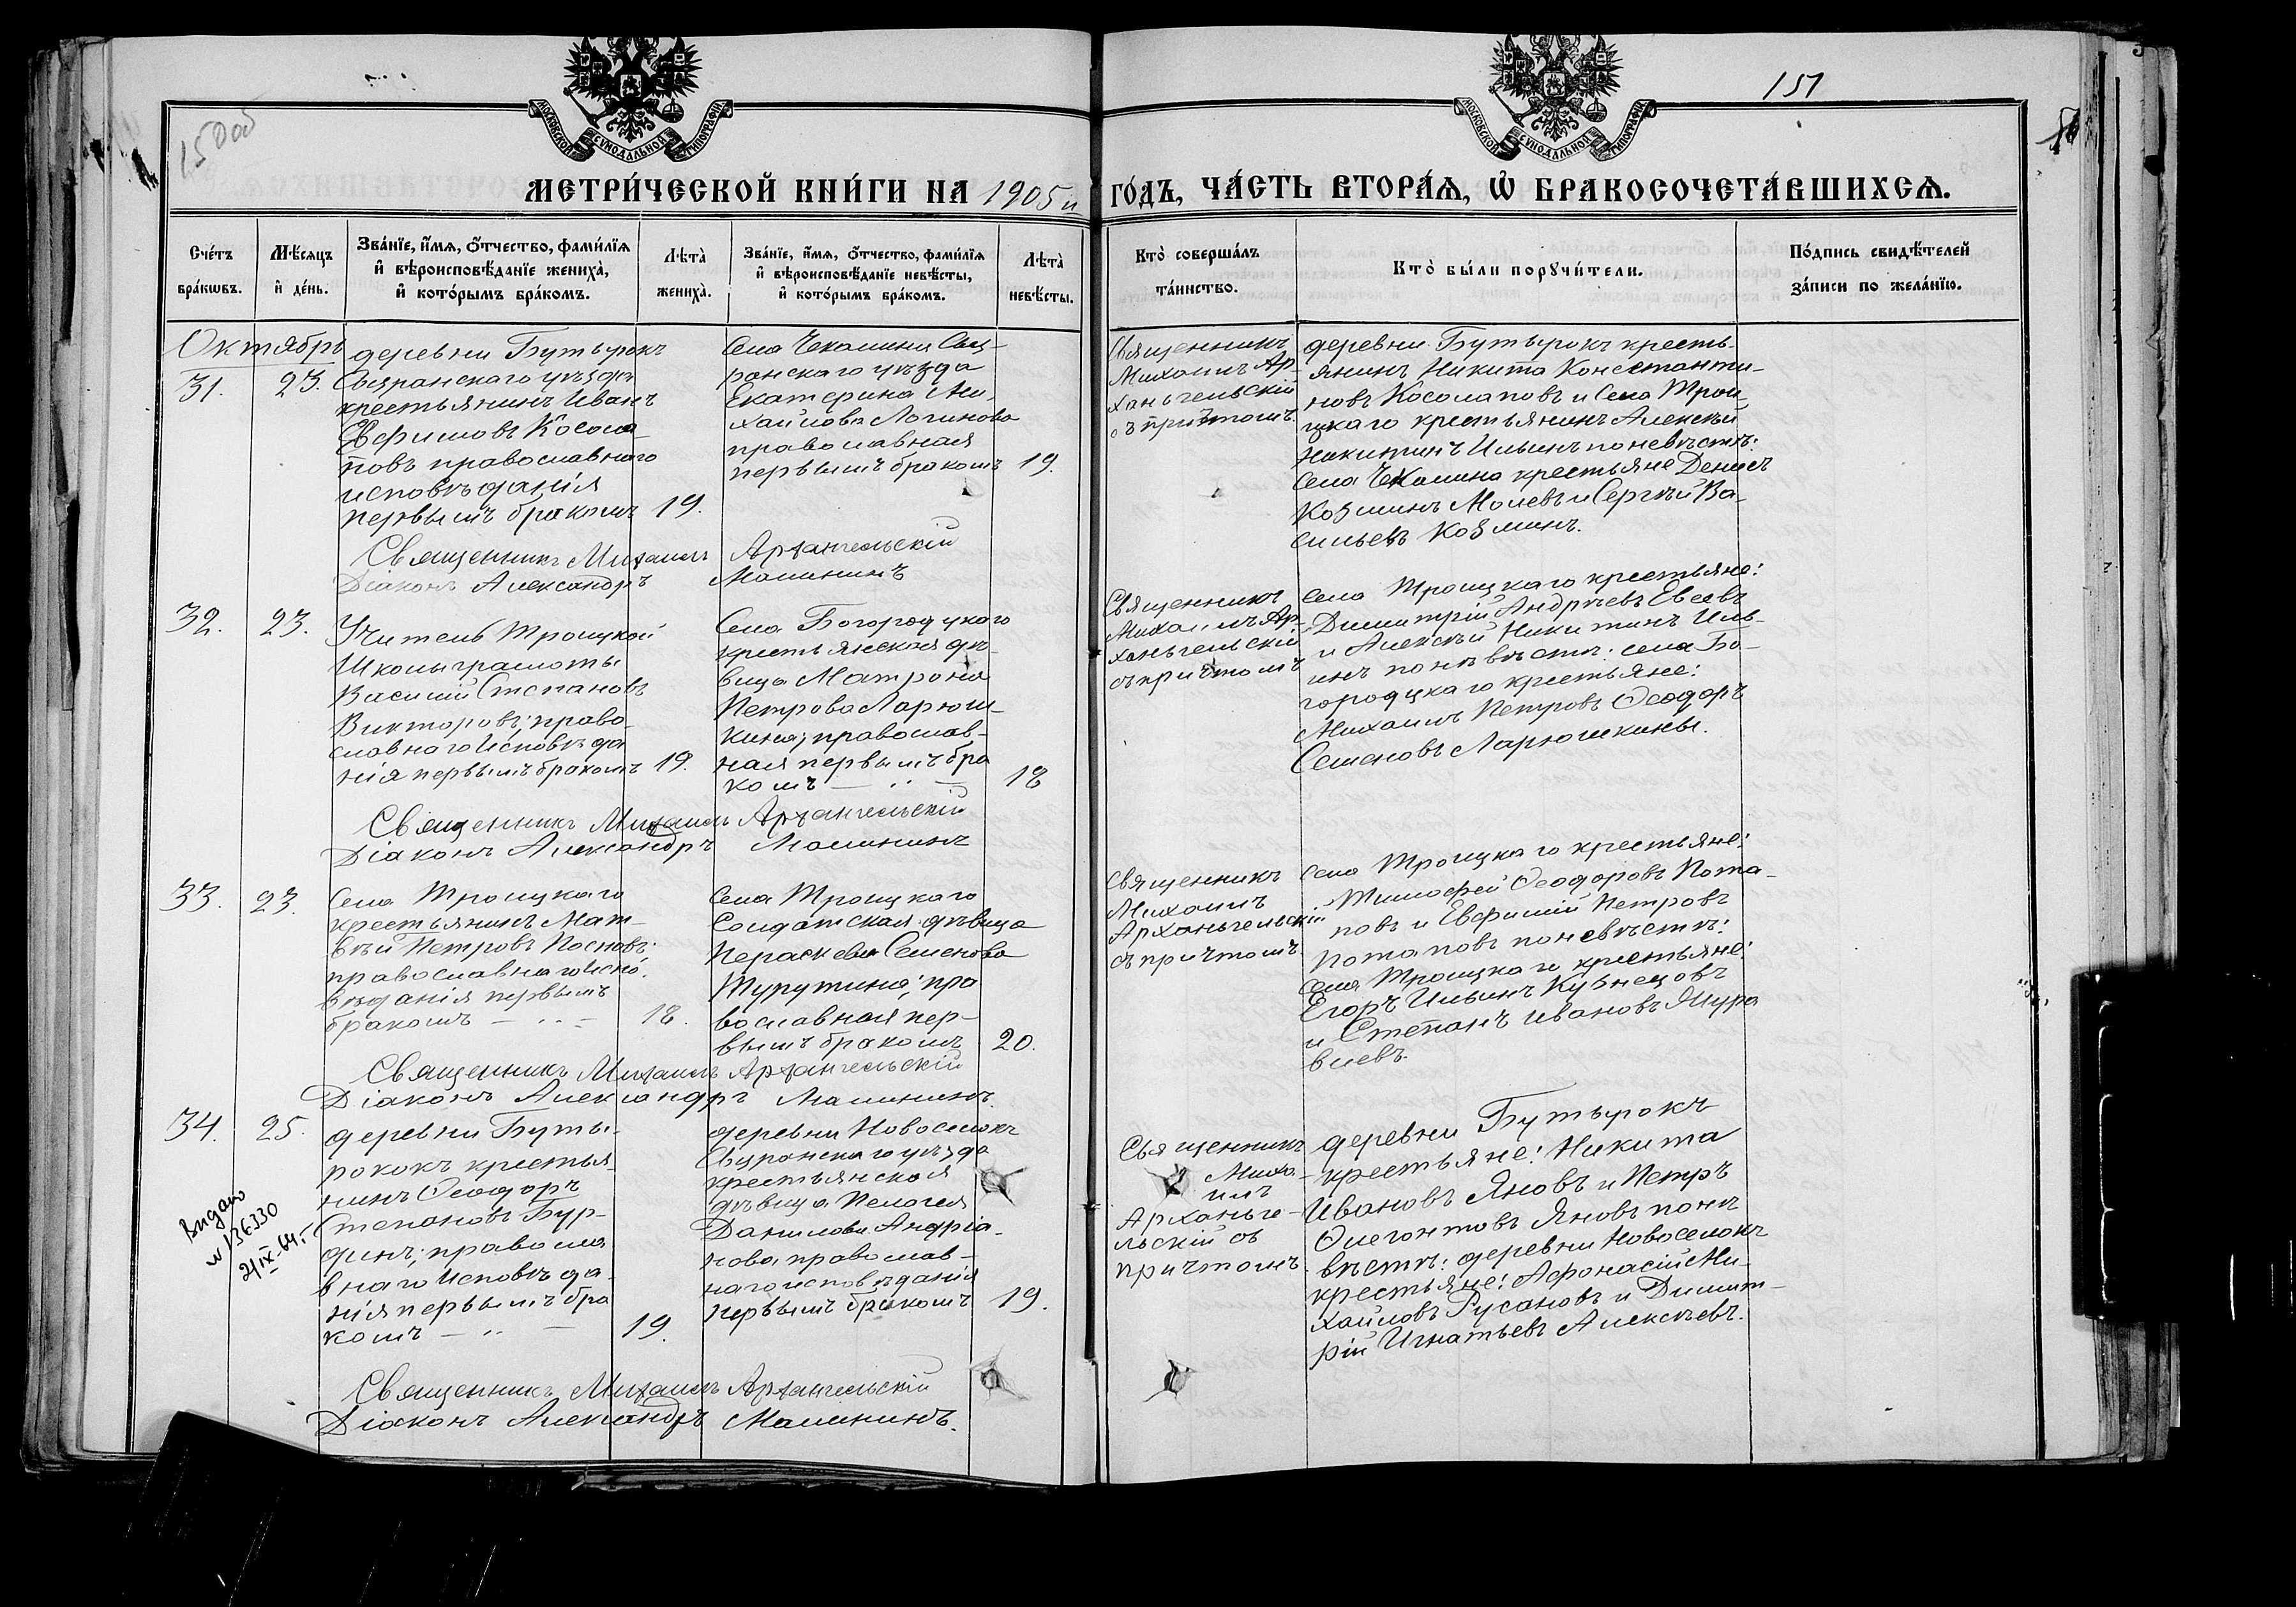 150 об
151
МОСКОВСКОЙ СѴНОДАЛЬНОЙ ТИПОГРАФІИ
МОСКОВСКОЙ СѴНОДАЛЬНОЙ ТИПОГРАФІИ
МЕТРИ́ЧЕСКОЙ КНИ́ГИ НА 1905 й ГО́ДЪ, ЧА́СТЬ ВТОРА́Ѧ, Ѡ҆ БРАКОСОЧЕТА́ВШИХСѦ.
Сче́тъ бра́кѡвъ.
Мѣ́сѧцъ и҆ де́нь.
Зва́нїе, и҆́мѧ, ѻ҆́тчество, фами́лїѧ
и҆ вѣроисповѣ́данїе женихà,
и҆ кото́рымъ бра́комъ.
Лѣтà женихà.
Зва́нїе, и҆́мѧ, ѻ҆́тчество, фами́лїѧ
и҆ вѣроисповѣ́данїе невѣ́сты,
и҆ кото́рымъ бра́комъ.
Лѣтà невѣ́сты.
Кто̀ соверша́лъ та́инство.
Кто̀ бы́ли порꙋчи́тели.
По́дпись свидѣ́телей
за́писи по жела́нїю.
Октябрь
31.
23.
деревни Бутырокъ
Сызранскаго уѣзда
крестьянинъ Иванъ
Евфимовъ Косола
повъ православнаго
исповѣданія
первымъ бракомъ
19.
Села Чекалина Сыз-
ранскаго уѣзда
Екатерина Ми-
хайлова Логинова
православная
первымъ бракомъ
19.
Священникъ
Михаилъ Ар-
ханьгельскій
съ притомъ.
деревни Бутырокъ кресть-
янинъ Никита Константи-
новъ Косолаповъ и Села Трои
цкаго крестьянинъ Алексѣй
Никитинъ Ильинъ по невѣстѣ:
Села Чекалина крестьяне Денисъ
Козминъ Молевъ и Сергѣй Ва-
сильевъ Козминъ.
Священникъ Михаилъ Архангельскій
Діаконъ Александръ Малининъ
32.
23.
Учитель Троицкой
Школы грамоты
Василий Степановъ
Викторовъ; право-
славнаго Исповѣда
нія первымъ бракомъ
19.
Села Богородцкого
крестьянская дѣ-
вица Матрона
Петрова Ларюш-
кина; православ-
ная первымъ бра
комъ
18
Священникъ
Михаилъ Ар-
ханьгельскій
съ причтомъ
Села Троицкаго крестьяне:
Димитрій Андрѣевъ Евсевъ
и Алексѣй Никитинъ Иль-
инъ по невѣстѣ: села Бо-
городцкаго крестьяне:
Михаилъ Петровъ Ѳеодоръ
Семеновъ Ларюшкины.
Священникъ Михаилъ Архангельскій
Діаконъ Александръ Малининъ
33.
23.
Села Троицкаго
крестьянинъ Мат-
вѣй Петровъ Посновъ;
православнаго Испо.
вѣданія первымъ
бракомъ
18.
Села Троицкаго
Солдатская дѣвица
Пераскева Семенова
Турутина; пра
вославная пер-
вымъ бракомъ
20.
Священникъ
Михаилъ
Арханьгельскій
съ причтомъ.
Села Троицкаго крестьяне:
Тимофей Ѳеодоровъ Пота-
повъ и Евфимій Петровъ
Потаповъ по невѣстѣ:
Села Троицкаго крестьяне:
Егоръ Ильинъ Кузнецовъ
и Степанъ Ивановъ Мура
влевъ.
Священникъ Михаилъ Архангельскій
Діаконъ Александръ Малининъ.
34.
25.
деревни Буты-
рококъ крестья
нинъ Ѳеодоръ
Степановъ Бур-
динъ; правосла
внаго Исповѣда-
нія первымъ бра
комъ
19.
деревни Новоселокъ
Сызранскаго уѣзда
крестьянская
дѣвица Пелагея
Данилова Андріа-
нова, православ-
наго исповѣданія
первымъ бракомъ
19.
Священникъ
Миха-
илъ
Арханьге-
льскій съ
причтомъ.
деревни Бутырокъ
крестьяне: Никита
Ивановъ Яновъ и Петръ
Олегонтовъ Яновъ по не
вѣстѣ: деревни Новоселокъ
крестьяне: Афонасій Ми-
хайловъ Русановъ и Димит-
рій Игнатьевъ Алексѣевъ.
Видано
№ 136330
2/IX-64 г.
Священникъ Михаилъ Архангельскій
Діаконъ Александръ Малининъ.